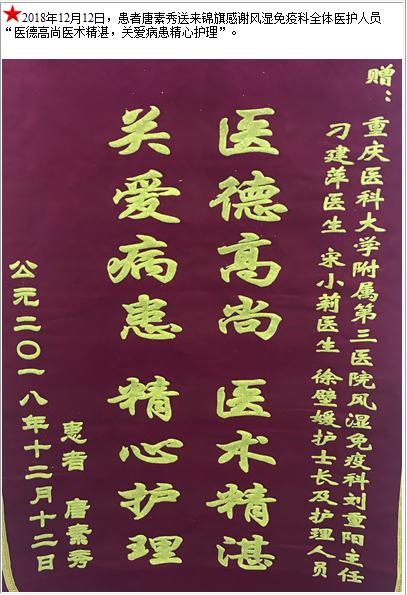 2018年12月12日，患者唐素秀送来锦旗感谢风湿免疫科全体医护人员
“医德高尚医术精湛，关爱病患精心护理”。
赠：
重庆医科大学附属第三医院风湿免疫科刘重阳主任
刁建萍医生 宋小莉医生 徐壁媛护士长及护理人员
医德高尚 医术精湛
关爱病患 精心护理
患者 唐素秀
公元二〇一八年十二月十二日